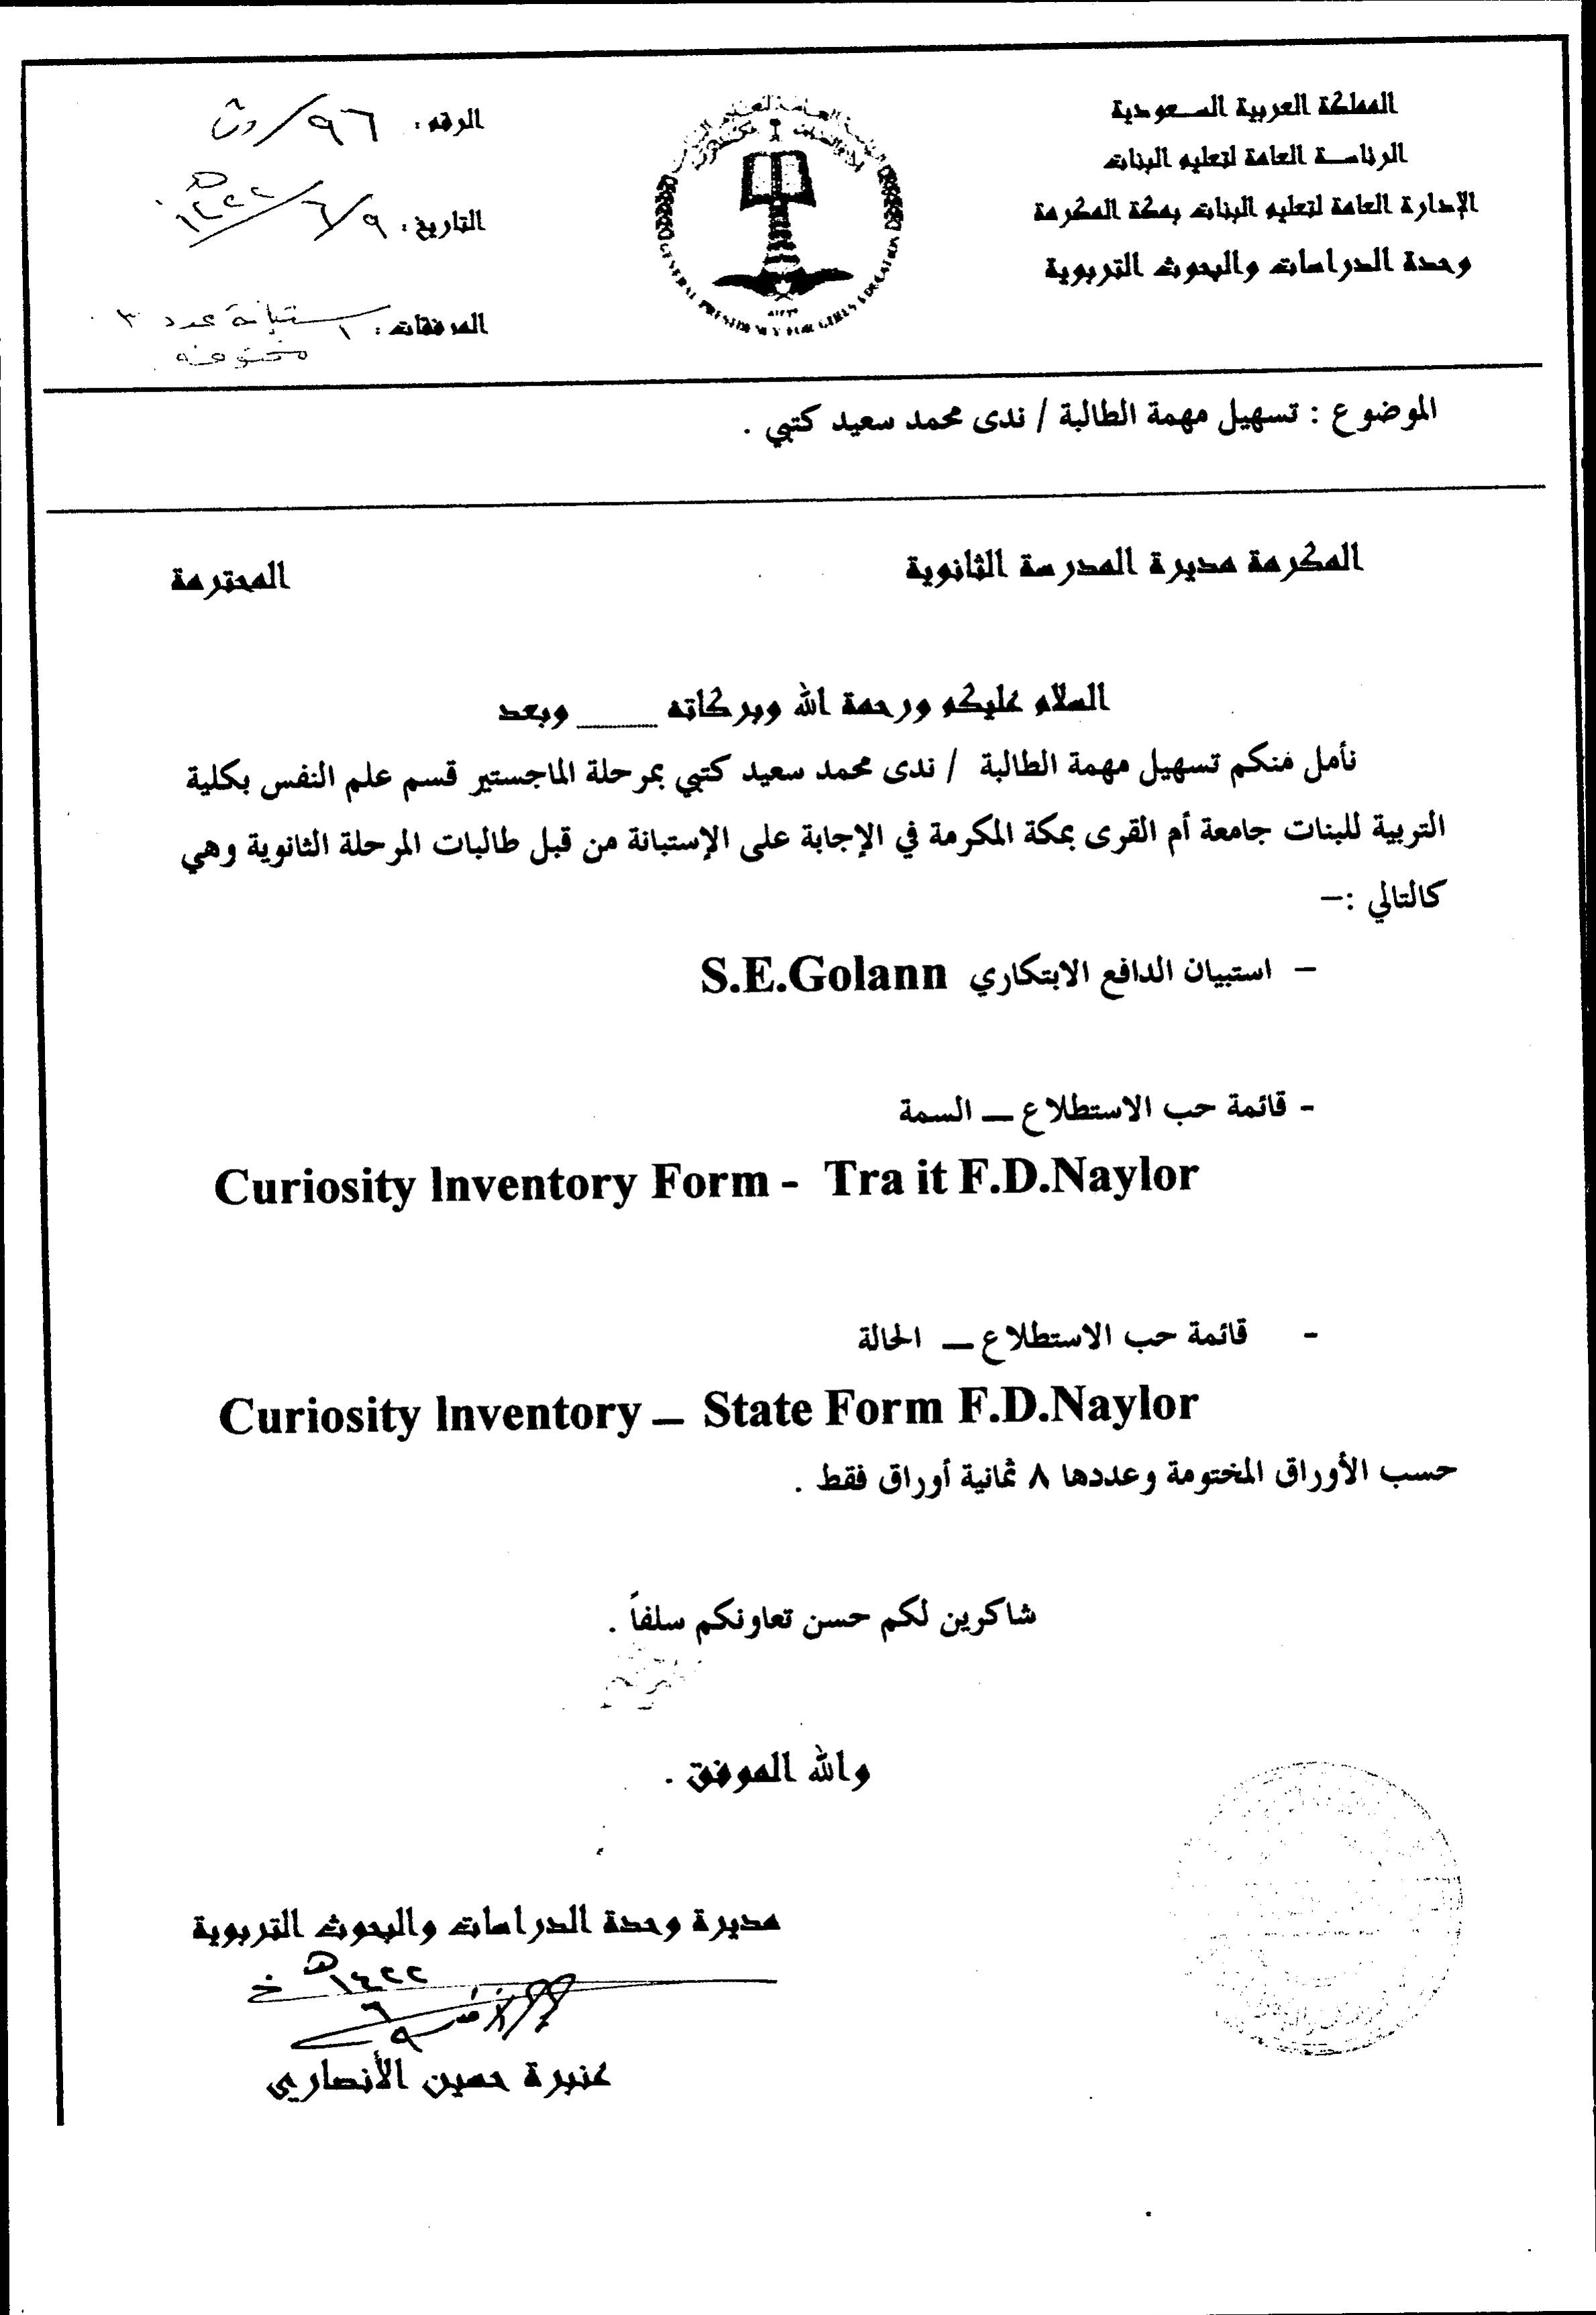 المملكة العربية السعودية
الرئاسة العامة لتعليم البنات
الإدارة العامة لتعليم البنات بمكة المكرمة
وحدة الدراسات والبحوث التربوية
GENERAL PRESIDENCY FOR GIRLS EDUCATION
الرقم : ٩٦/
التاريخ : ٩/٦/١٤٢٢هـ
المرفقات : استبانة عدد ٣
مختومة
الموضوع : تسهيل مهمة الطالبة / ندى محمد سعيد كتبي .
المكرمة مديرة المدرسة الثانوية المحترمة
السلام عليكم ورحمة الله وبركاته ____ وبعد
نأمل منكم تسهيل مهمة الطالبة / ندى محمد سعيد كتبي بمرحلة الماجستير قسم علم النفس بكلية
التربية للبنات جامعة أم القرى بمكة المكرمة في الإجابة على الإستبانة من قبل طالبات المرحلة الثانوية وهي
كالتالي :–
– استبيان الدافع الابتكاري S.E.Golann
- قائمة حب الاستطلاع – السمة
Curiosity Inventory Form - Tra it F.D.Naylor
- قائمة حب الاستطلاع – الحالة
Curiosity Inventory – State Form F.D.Naylor
حسب الأوراق المختومة وعددها ٨ ثمانية أوراق فقط .
شاكرين لكم حسن تعاونكم سلفاً .
والله الموفق .
مديرة وحدة الدراسات والبحوث التربوية
١٤٢٢هـ
٦
٩
عنبرة حسين الأنصاري